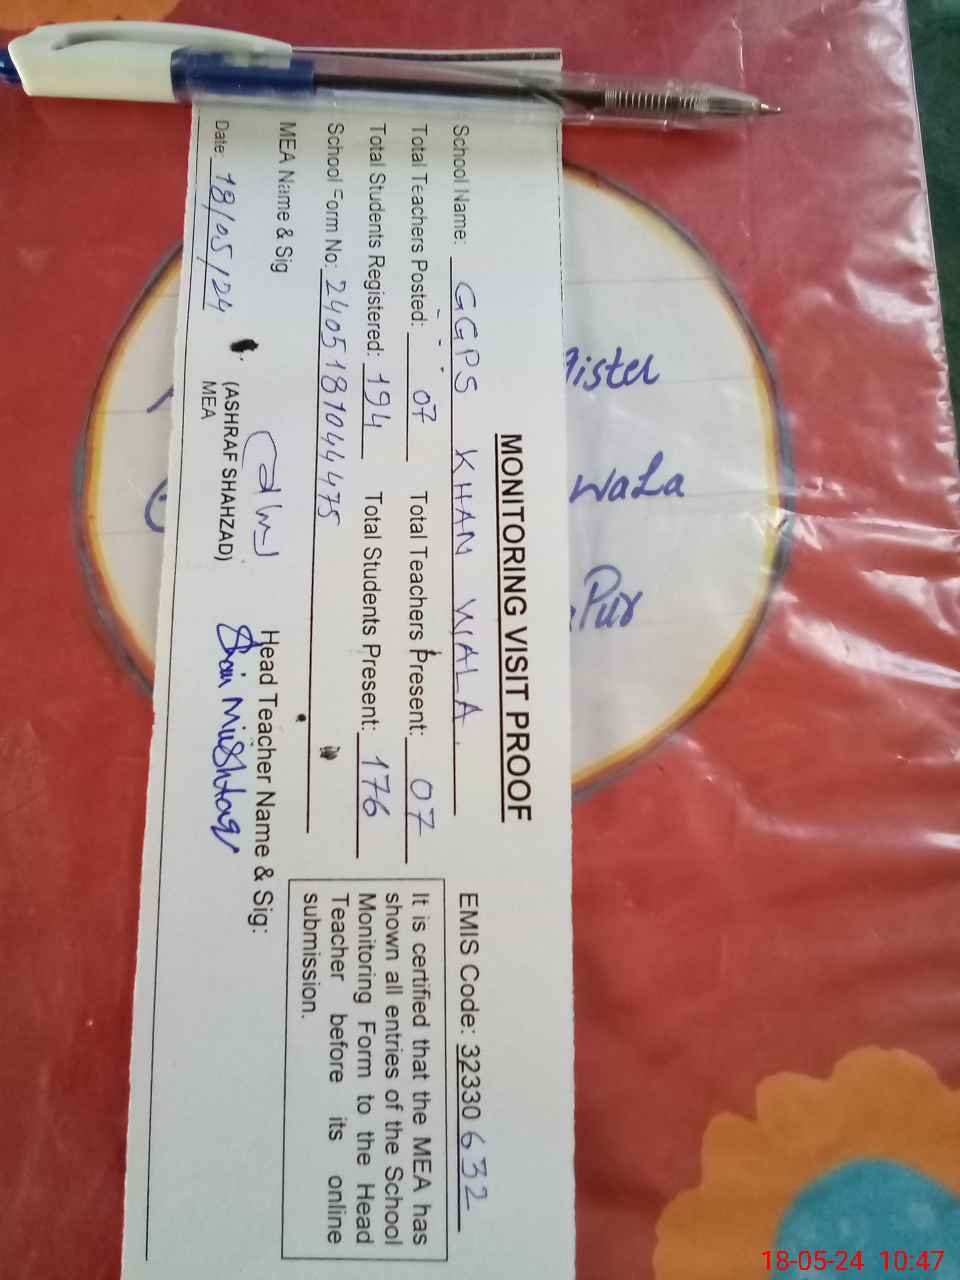 MONITORING VISIT PROOF
School Name: GGPS KHAN WALA. EMIS Code: 32330632
Total Teachers Posted: 07 Total Teachers Present: 07
Total Students Registered: 194 Total Students Present: 176
School Form No: 240518104447S
It is certified that the MEA has
shown all entries of the School
Monitoring Form to the Head
Teacher before its online
submission.
MEA Name & Sig Head Teacher Name & Sig:
(ASHRAF SHAHZAD)
MEA
Mushtaq
Date: 18/05/24
wala
Pur
18-05-24 10:47